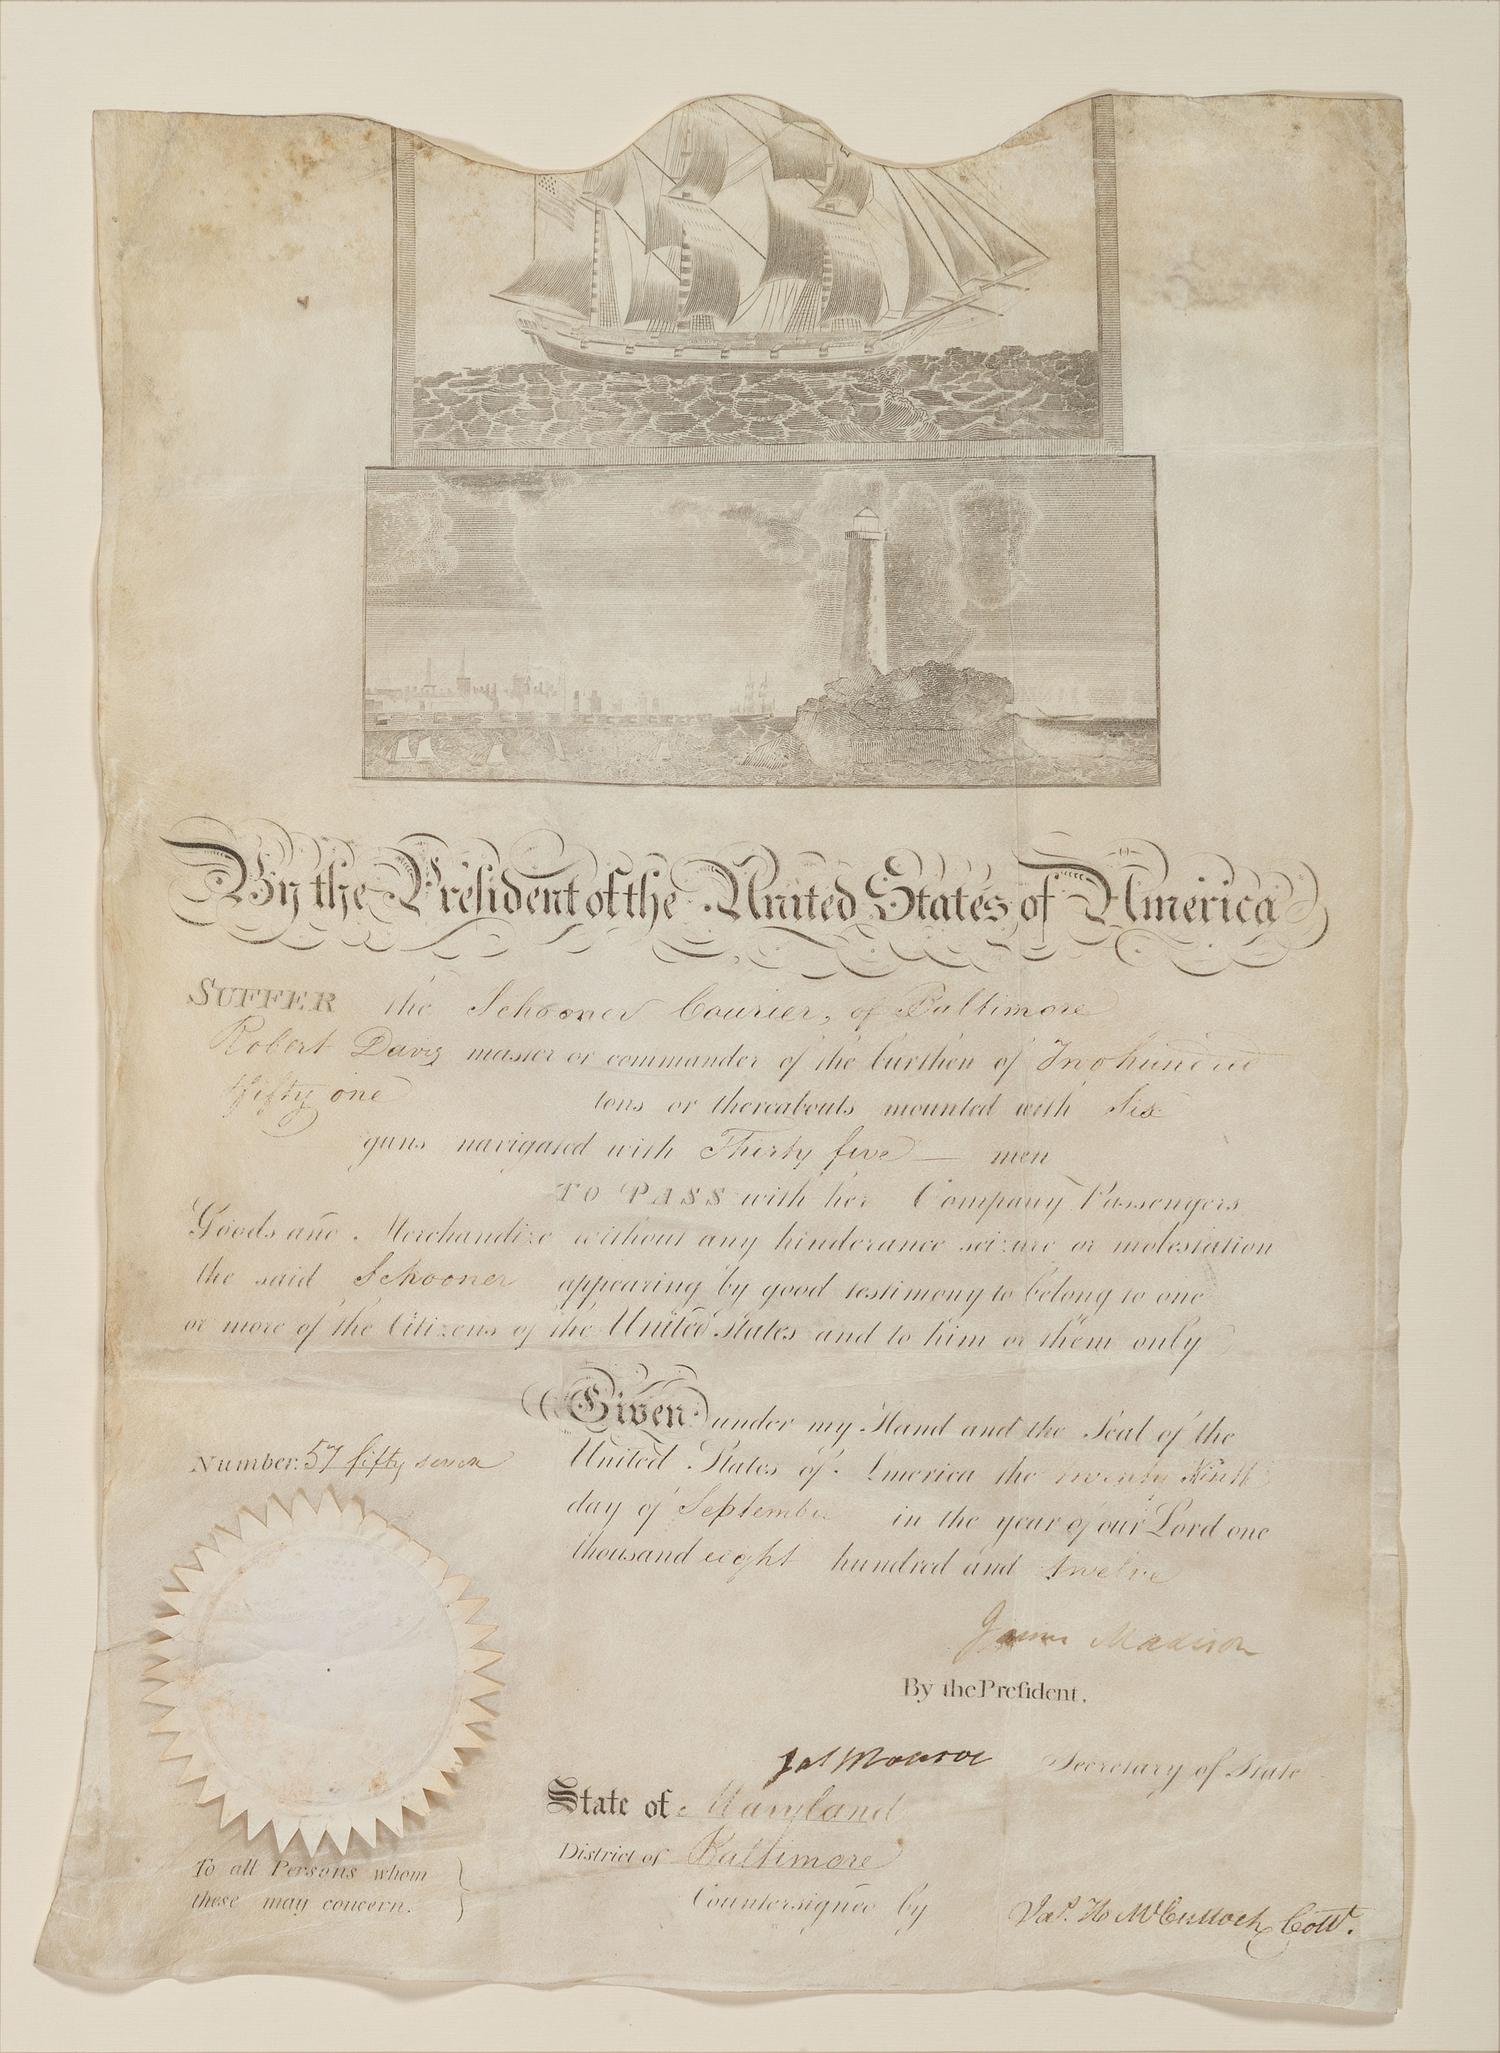 By the President of the United States of America
SUFFER the Schooner Courier, of Baltimore
Robert Davis master or commander of the burthen of Two hundred
fifty one tons or thereabouts mounted with Six
guns navigated with Thirty five — men
TO PASS with her Company Passengers
Goods and Merchandize without any hinderance seizure or molestation
the said Schooner appearing by good testimony to belong to one
or more of the Citizens of the United States and to him or them only
Given under my Hand and the Seal of the
United States of America the twenty Ninth
day of September in the year of our Lord one
thousand eight hundred and twelve
Number. 57 fifty seven
James Madison
By the Preſident.
Jas Monroe Secretary of State
State of Maryland
District of Baltimore
Countersigned by Jas. H McCulloch Collr.
To all Persons whom
these may concern.